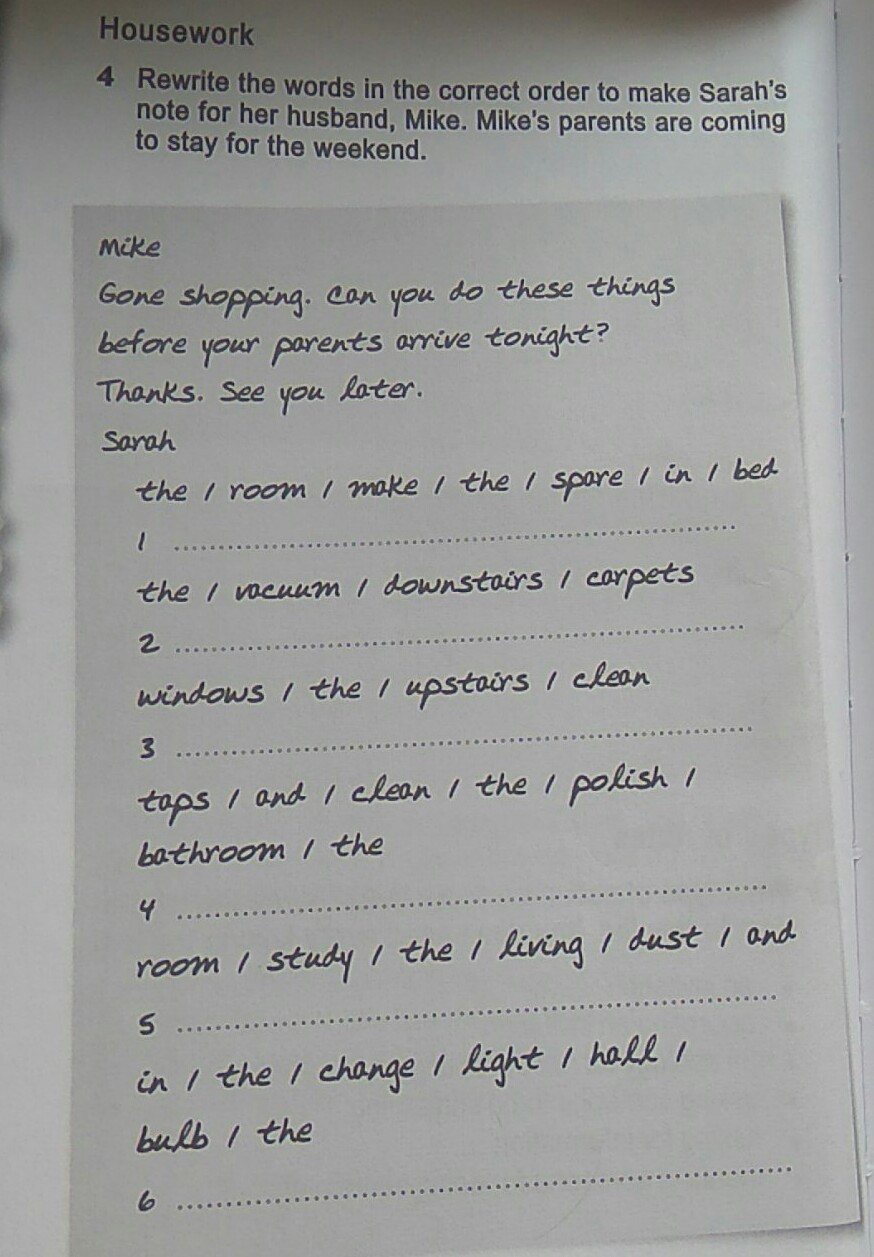 Housework
4 Rewrite the words in the correct order to make Sarah's
note for her husband, Mike. Mike's parents are coming
to stay for the weekend.
Mike
Gone shopping. Can you do these things
before your parents arrive tonight?
Thanks. See you later.
Sarah
the / room / make / the / spare / in / bed
1 ........................................
the / vacuum / downstairs / carpets
2 ........................................
windows / the / upstairs / clean
3 ........................................
taps / and / clean / the / polish /
bathroom / the
4 ........................................
room / study / the / living / dust / and
5 ........................................
in / the / change / light / hall /
bulb / the
6 ........................................